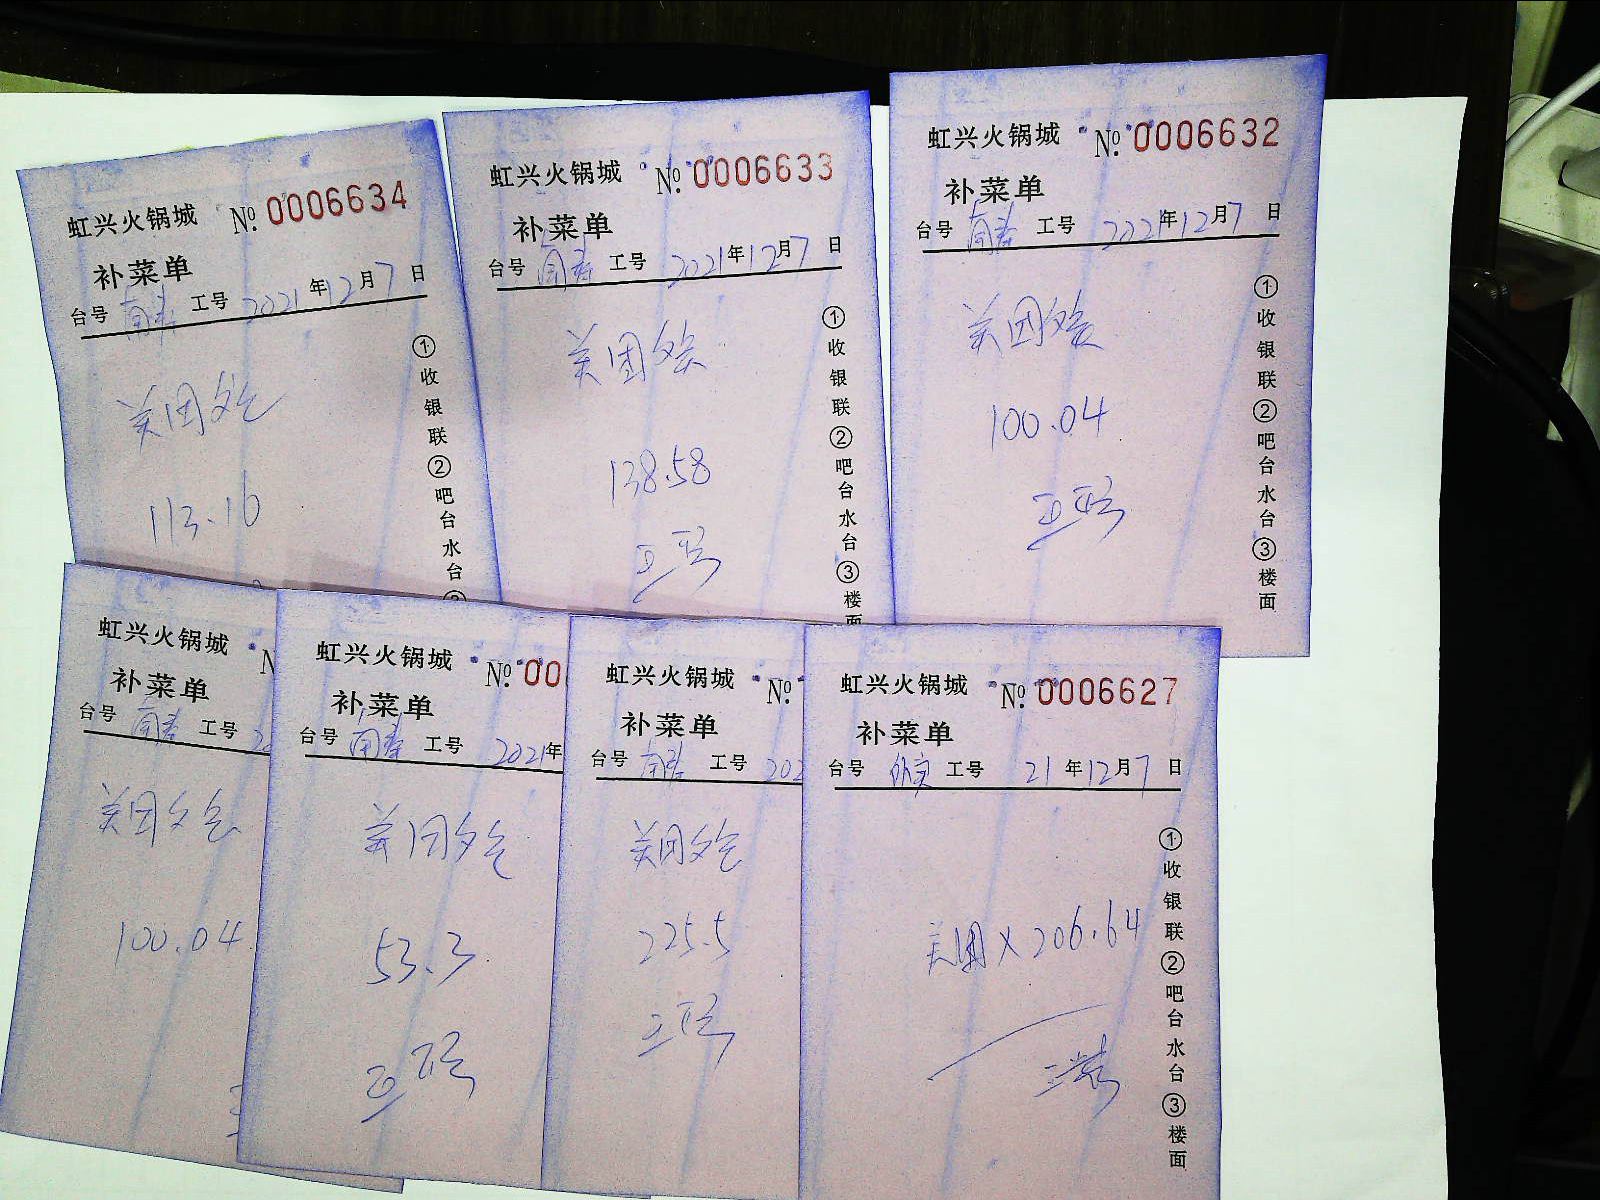 虹兴火锅城 No. 0006634
补菜单
台号 工号 2021年12月7日
美团外仓
113.16
①收银联②吧台水台
虹兴火锅城 No. 0006633
补菜单
台号 工号 2021年12月7日
美团外卖
138.58
①收银联②吧台水台③楼面
虹兴火锅城 No. 0006632
补菜单
台号 工号 2021年12月7日
美团外卖
100.04
①收银联②吧台水台③楼面
虹兴火锅城
补菜单
台号 工号
美团
100.04
虹兴火锅城 No. 00
补菜单
台号 工号 2021年
美团
53.3
虹兴火锅城 No.
补菜单
台号 工号 202
美团
225.5
虹兴火锅城 No. 0006627
补菜单
台号 工号 21年12月7日
美团X206.64
①收银联②吧台水台③楼面